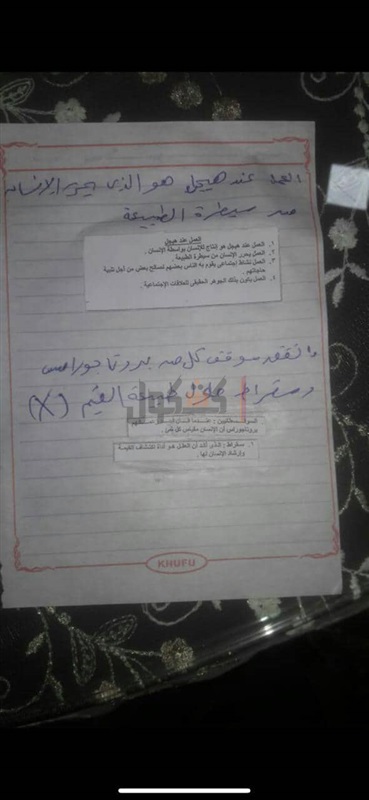 العمل عند هيجل هو الذى يحرر الإنسان
من سيطرة الطبيعة
العمل عند هيجل
١. العمل عند هيجل هو إنتاج للإنسان بواسطة الإنسان .
٢. العمل يحرر الإنسان من سيطرة الطبيعة.
٣. العمل نشاط إجتماعى يقوم به الناس بعضهم لصالح بعض من أجل تلبية
حاجاتهم .
٤. العمل يكون بذلك الجوهر الحقيقى للعلاقات الإجتماعية .
اتفقت موقف كل من بروتاجوراس
وسقراط حول طبيعة القيم (X)
كشكول
بروتاجوراس أن الإنسان مقياس كل شئ .
١. سقراط : الذى أكد أن العقل هو أداة لاكتشاف القيمة
وإرشاد الإنسان لها .
KHUFU